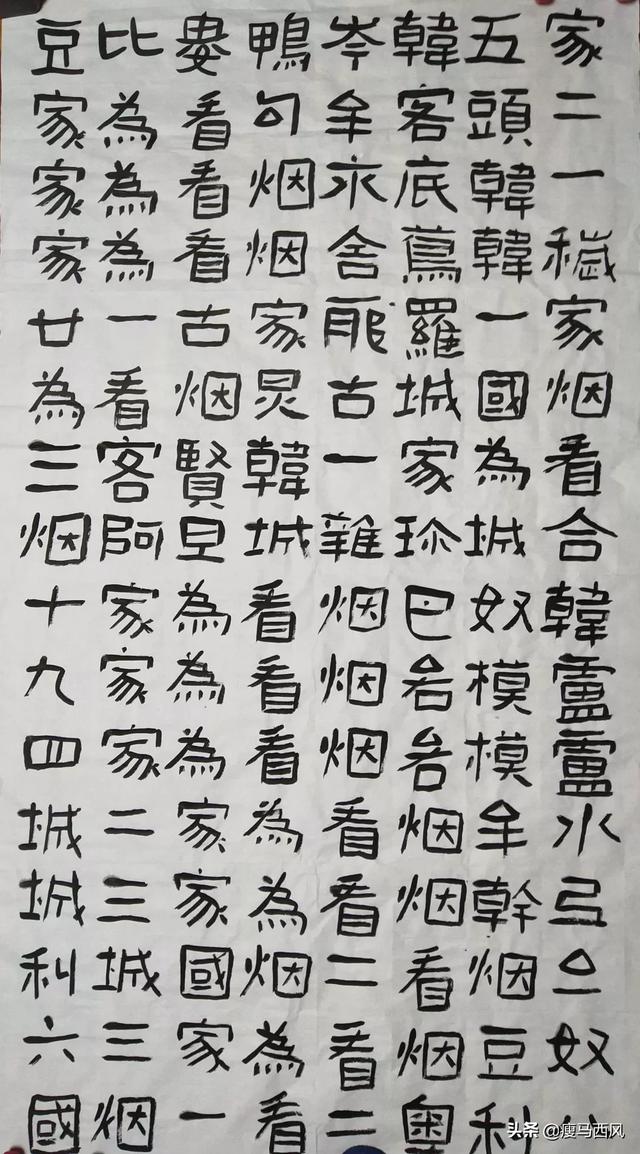 家二一穢家烟看合韓盧盧水奴
五頭韓韓一國為城奴模模牟幹烟豆利
韓客底蔦羅城家珎巴烟烟看烟
岑牟水舍古一難烟烟烟看看二看二
鴨句烟烟家炅韓城看看看為為烟為看
婁看看看古烟賢旦為為為家家國家一
比為為為一看客阿家家家二三城三烟
豆家家家廿為三烟十九四城城利六國
头条 @瘦马西风